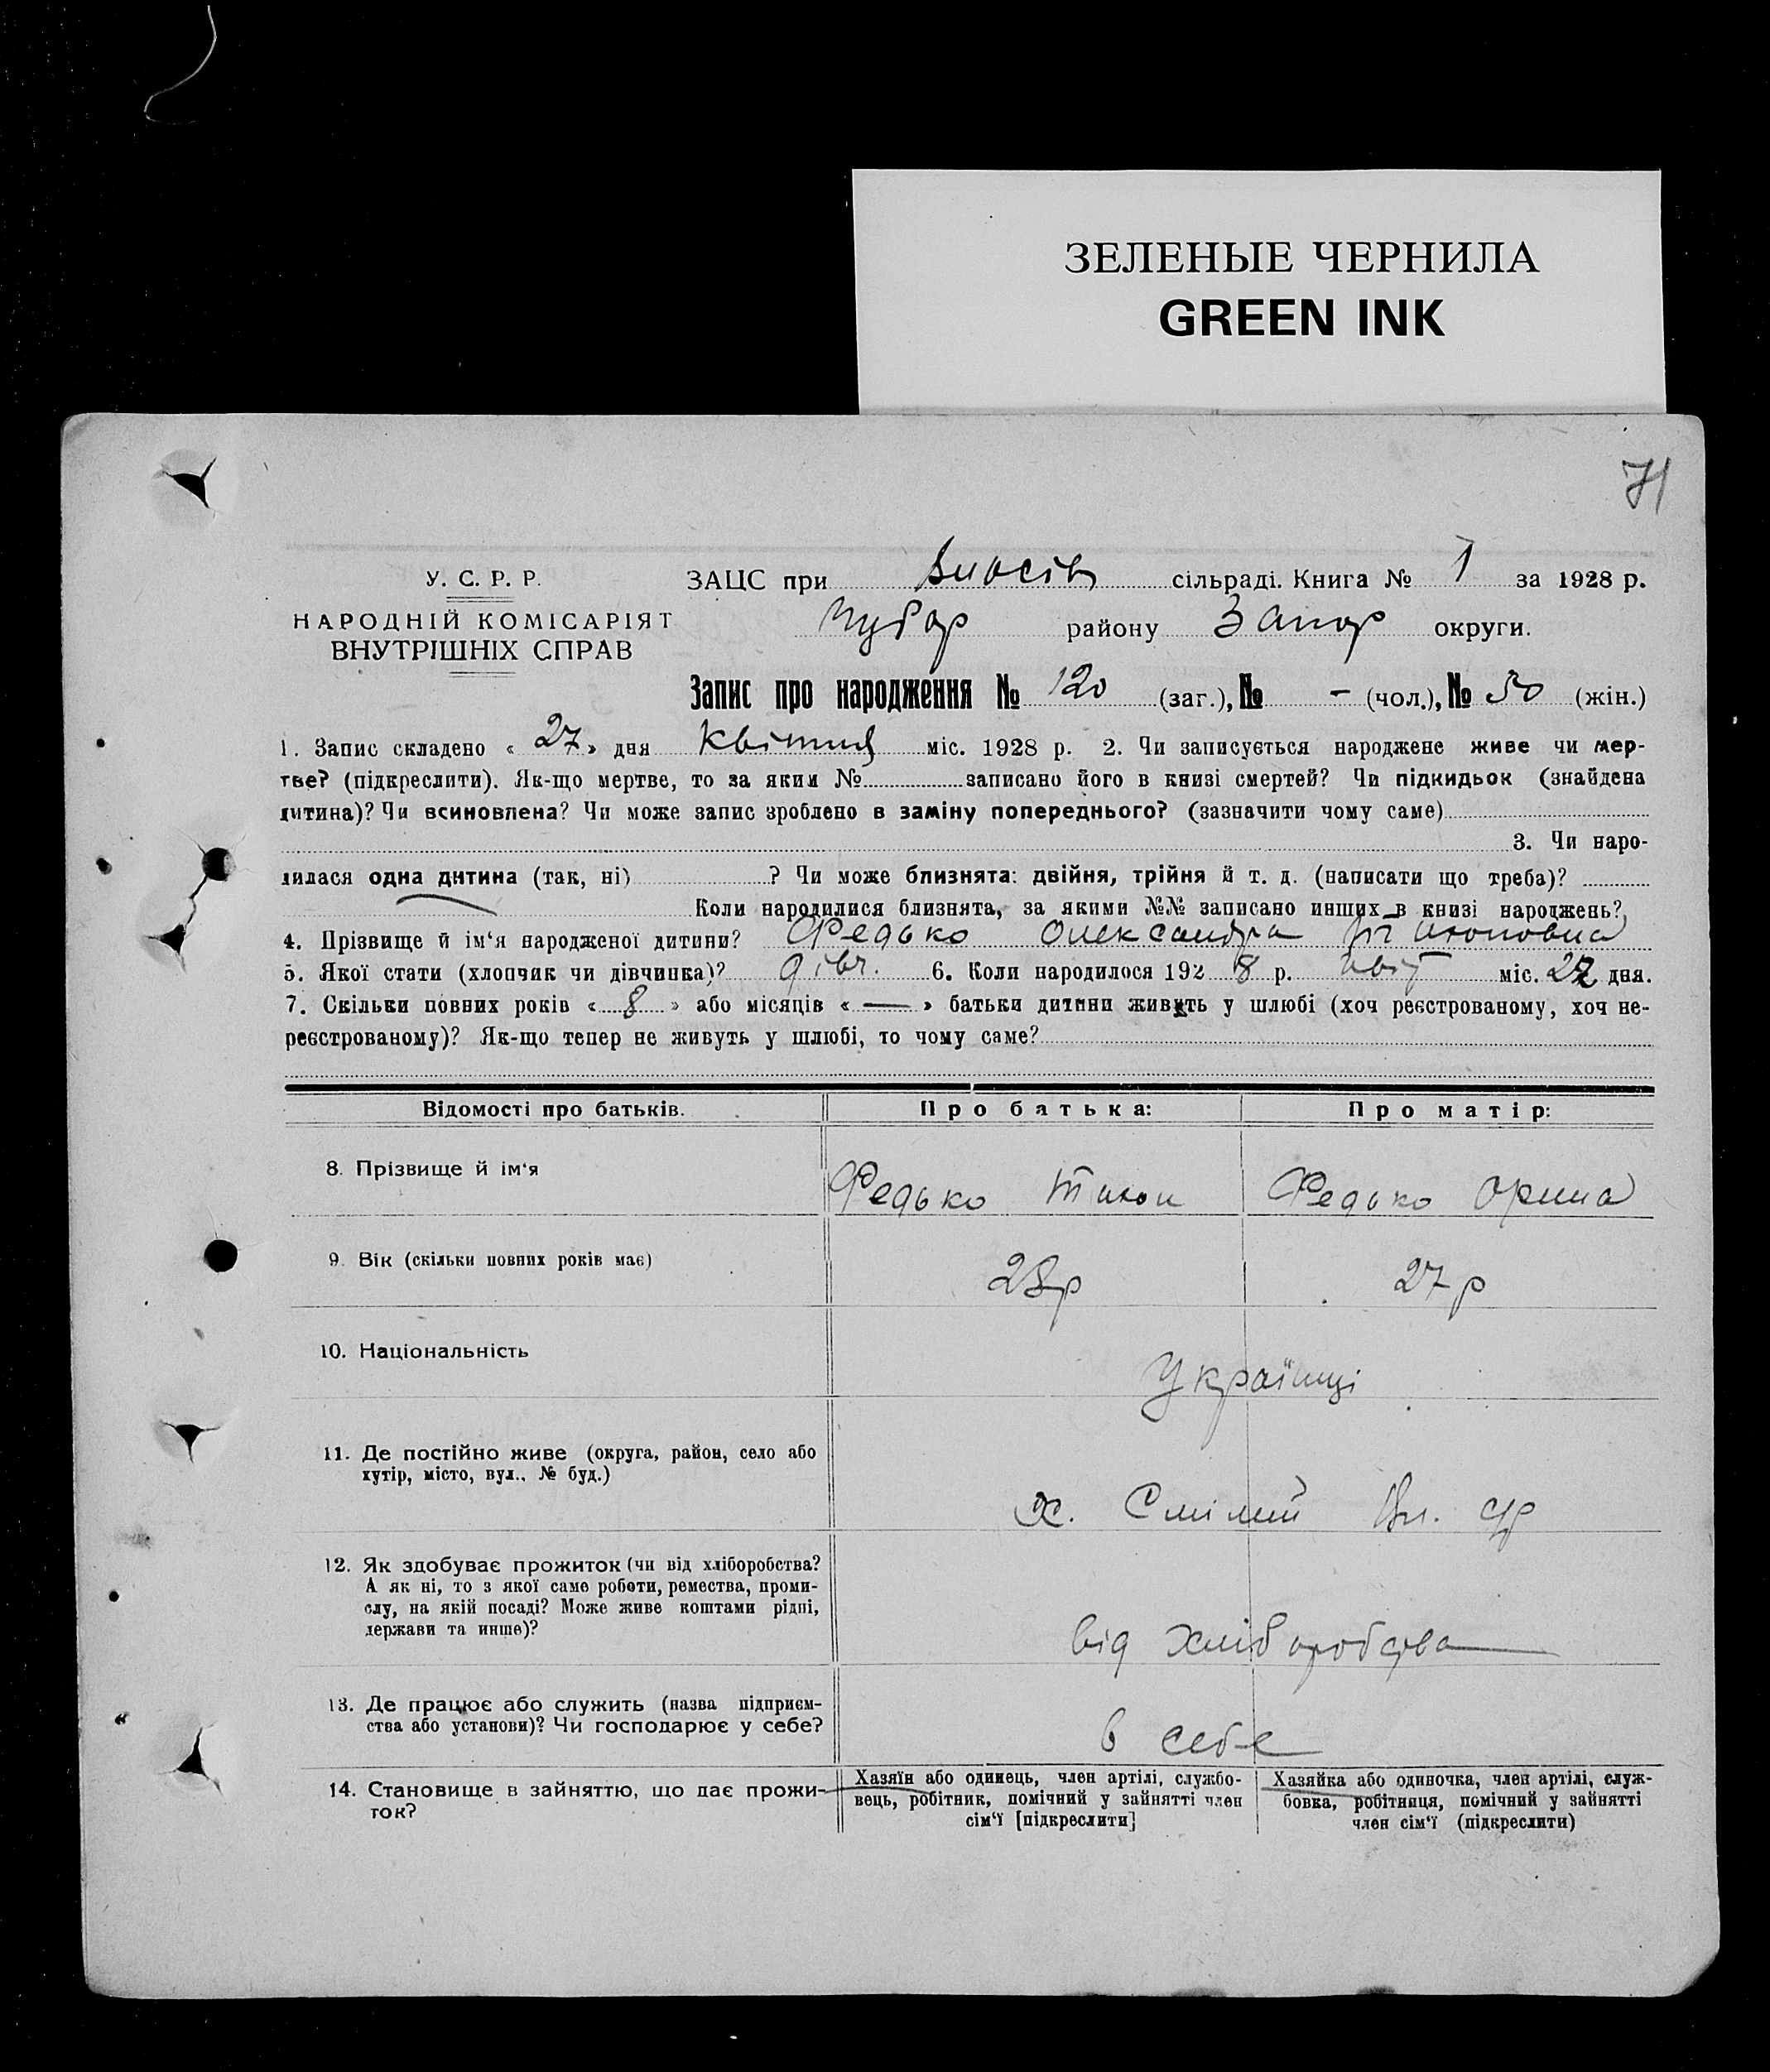 ЗЕЛЕНЫЕ ЧЕРНИЛА
GREEN INK
71
У. С. Р. Р.
НАРОДНІЙ КОМІСАРІЯТ
ВНУТРІШНІХ СПРАВ
ЗАЦС при Власів сільраді. Книга № 1 за 1928 р.
Чубар району Запор округи.
Запис про народження № 120 (заг.), № - (чол.), № 50 (жін.)
1. Запис складено « 27 » дня квітня міс. 1928 р. 2. Чи записується народжене живе чи мер-
тве? (підкреслити). Як-що мертве, то за яким № записано його в книзі смертей? Чи підкидьок (знайдена
дитина)? Чи всиновлена? Чи може запис зроблено в заміну попереднього? (зазначити чому саме)
3. Чи наро-
дилася одна дитина (так, ні) ? Чи може близнята: двійня, трійня й т. д. (написати що треба)?
Коли народилися близнята, за якими №№ записано инших в книзі народжень?
4. Прізвище й ім‘я народженої дитини? Федько Олександра Тихоновна
5. Якої статі (хлопчик чи дівчинка)? дівч. 6. Коли народилося 192 8 р. квіт міс. 22 дня.
7. Скільки повних років « 8 » або місяців « — » батьки дитини живуть у шлюбі (хоч реєстрованому, хоч не-
реєстрованому)? Як-що тепер не живуть у шлюбі, то чому саме?
Відомості про батьків. Про батька: Про матір:
8. Прізвище й ім‘я Федько Тихон Федько Орина
9. Вік (скільки повних років має) 28р 27р
10. Національність Українці
11. Де постійно живе (округа, район, село або
хутір, місто, вул., № буд.)
х. Смілий Вл. с/р
12. Як здобуває прожиток (чи від хліборобства?
А як ні, то з якої саме роботи, ремества, проми-
слу, на якій посаді? Може живе коштами рідні,
держави та инше)?
від хліборобства
13. Де працює або служить (назва підприєм-
ства або установи)? Чи господарює у себе?
в себе
14. Становище в зайняттю, що дає прожи-
ток?
Хазяїн або одинець, член артілі, службо-
вець, робітник, помічний у зайнятті член
сім‘ї [підкреслити]
Хазяйка або одиночка, член артілі, служ-
бовка, робітниця, помічний у зайнятті
член сім‘ї (підкреслити)